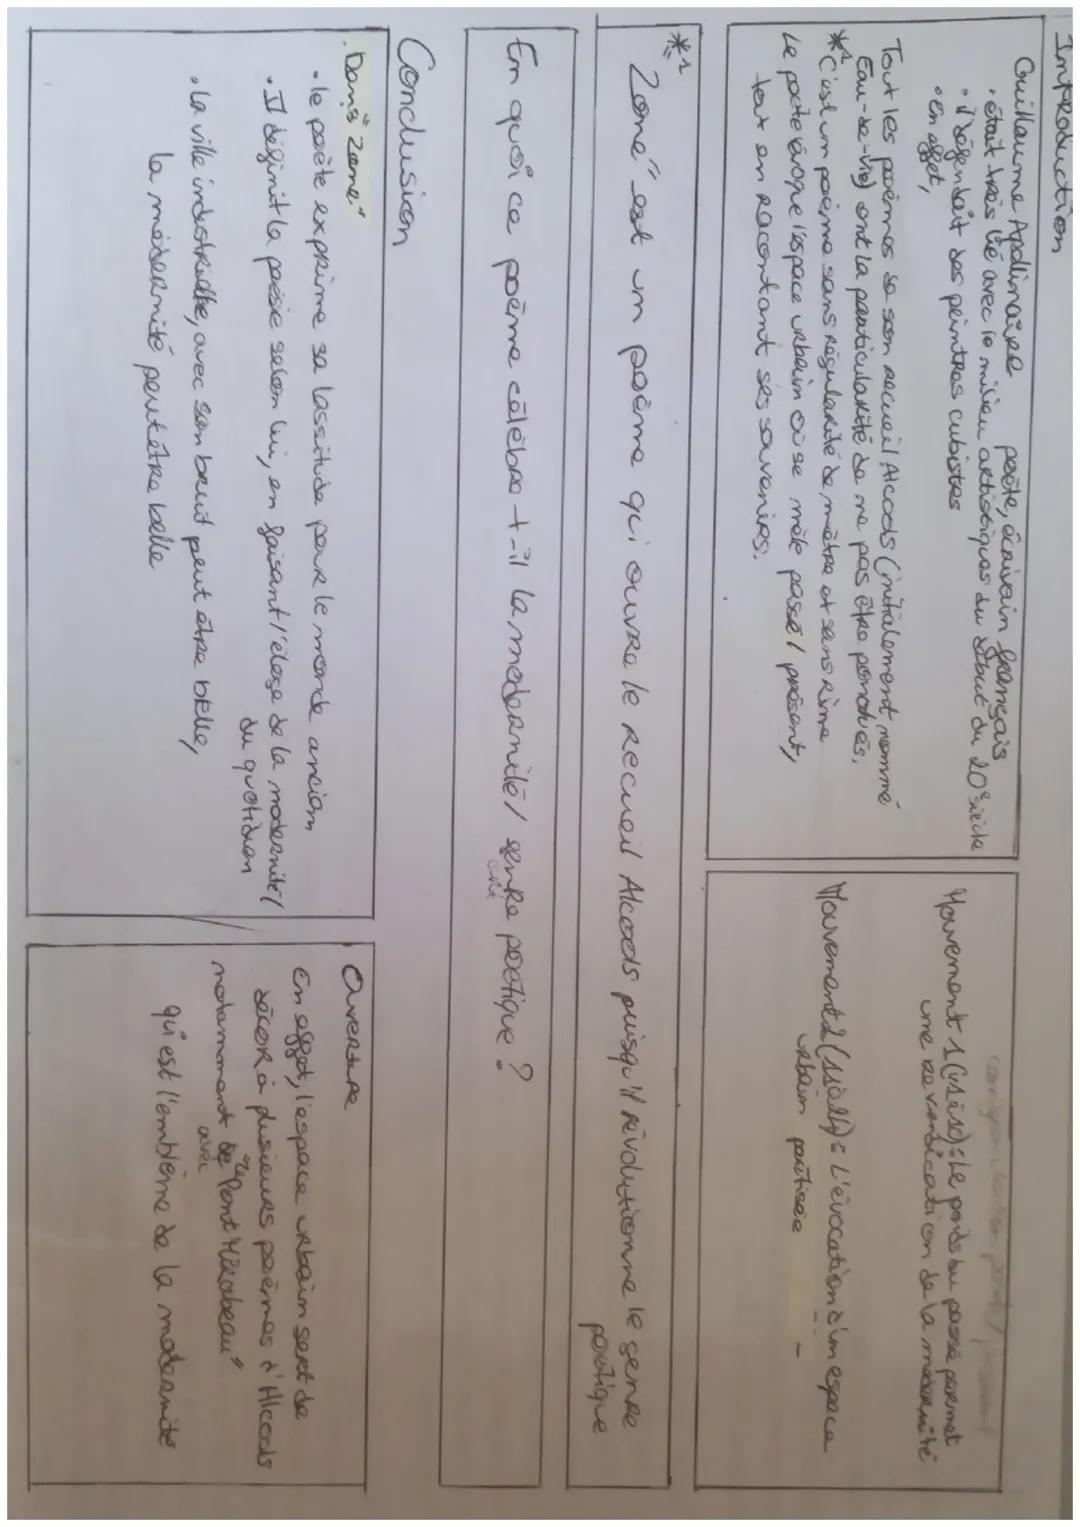 Introduction
Guillaume Apollinaire poète, écrivain français
• était très lié avec le milieu artistiques du début du 20e siècle
• il défendait des peintres cubistes
• en effet,
Tout les poèmes de son recueil Alcools (initialement nommé
Eau-de-vie) ont la particularité de ne pas être ponctués.
* C'est un poème sans régularité de mètre et sans rime
Le poète évoque l'espace urbain où se mêle passé / présent,
tout en racontant ses souvenirs.
Mouvement 1 : Le poids du passé permet
une revendication de la modernité
Mouvement 2 : L'évocation d'un espace
urbain poétisée
*1
"Zone" est un poème qui ouvre le recueil Alcools puisqu'il révolutionne le genre
poétique
En quoi ce poème célèbre-t-il la modernité / genre poétique ?
Conclusion
. Dans "Zone"
• le poète exprime sa lassitude pour le monde ancien
• Il définit la poésie selon lui, en faisant l'éloge de la modernité /
du quotidien
• La ville industrielle, avec son bruit peut être belle,
la modernité peut être belle
Ouverture
En effet, l'espace urbain sert de
décor à plusieurs poèmes d'Alcools
notamment de "le Pont Mirabeau"
avec
qui est l'emblème de la modernité